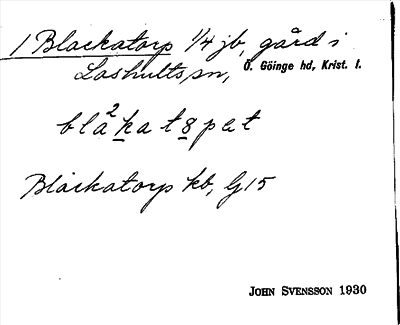 1 Blackatorp 1/4 jb, gård i
Loshults sn, Ö. Göinge hd, Krist. l.
blá²katspet
Blåckatorp kb, G15
JOHN SVENSSON 1930